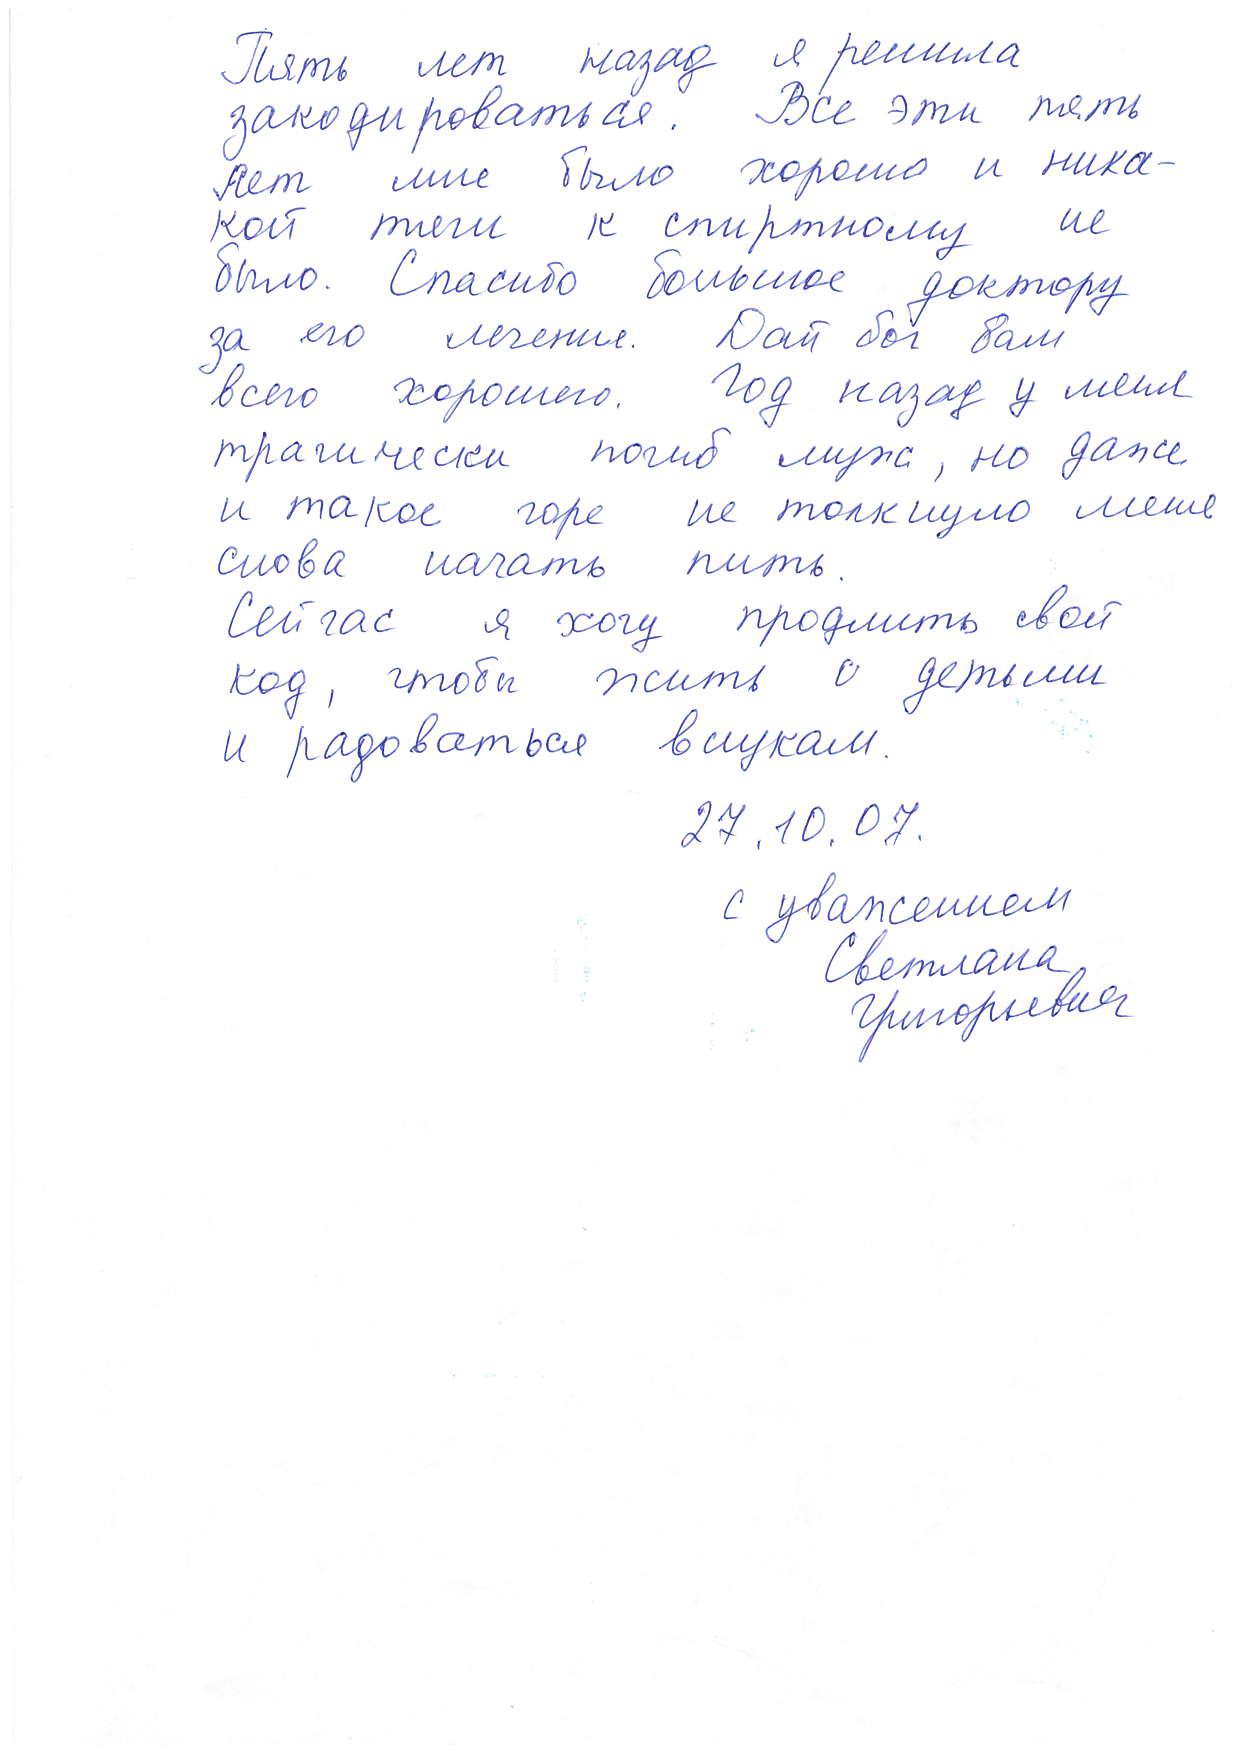 Пять лет назад я решила
закодироваться. Все эти пять
лет мне было хорошо и ника-
кой тяги к спиртному не
было. Спасибо большое доктору
за его лечение. Дай бог вам
всего хорошего. Год назад у меня
трагически погиб муж, но даже
и такое горе не толкнуло меня
снова начать пить.
Сейчас я хочу продлить свой
код, чтобы жить с детьми
и радоваться внукам.
27.10.07.
с уважением
Светлана
Григорьевна